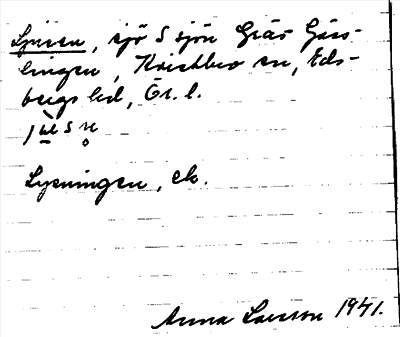 Ljusen, sjö S sjön Gräs Gäss-
lingen, Knistbro sn, Eds-
bergs hd, Ör. l.
Lysningen, ek.
Anna Larsson 1941.